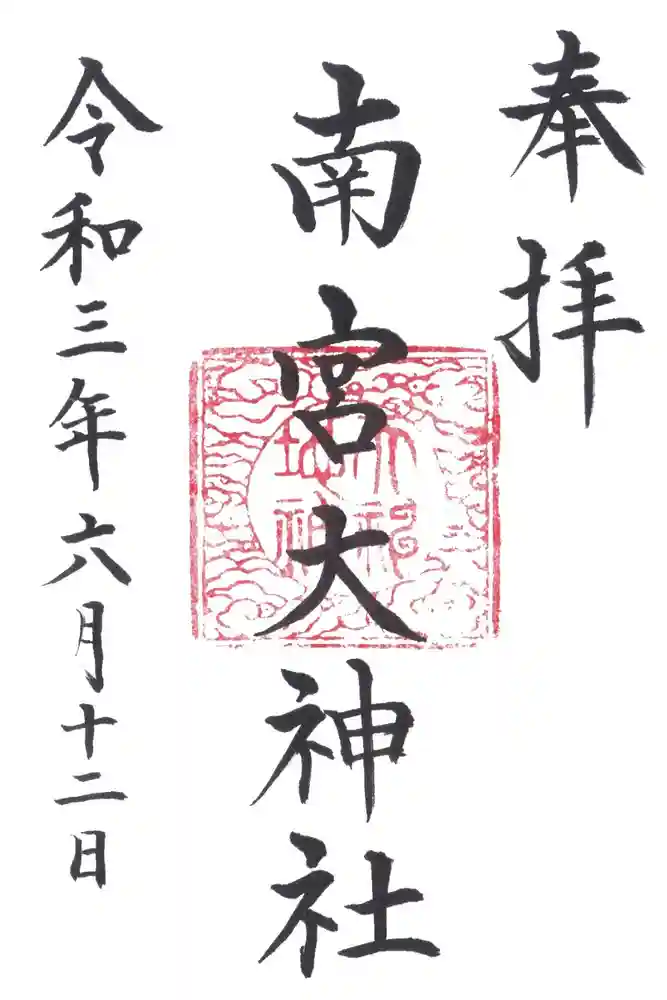 奉拝
南宮大神社
令和三年六月十二日